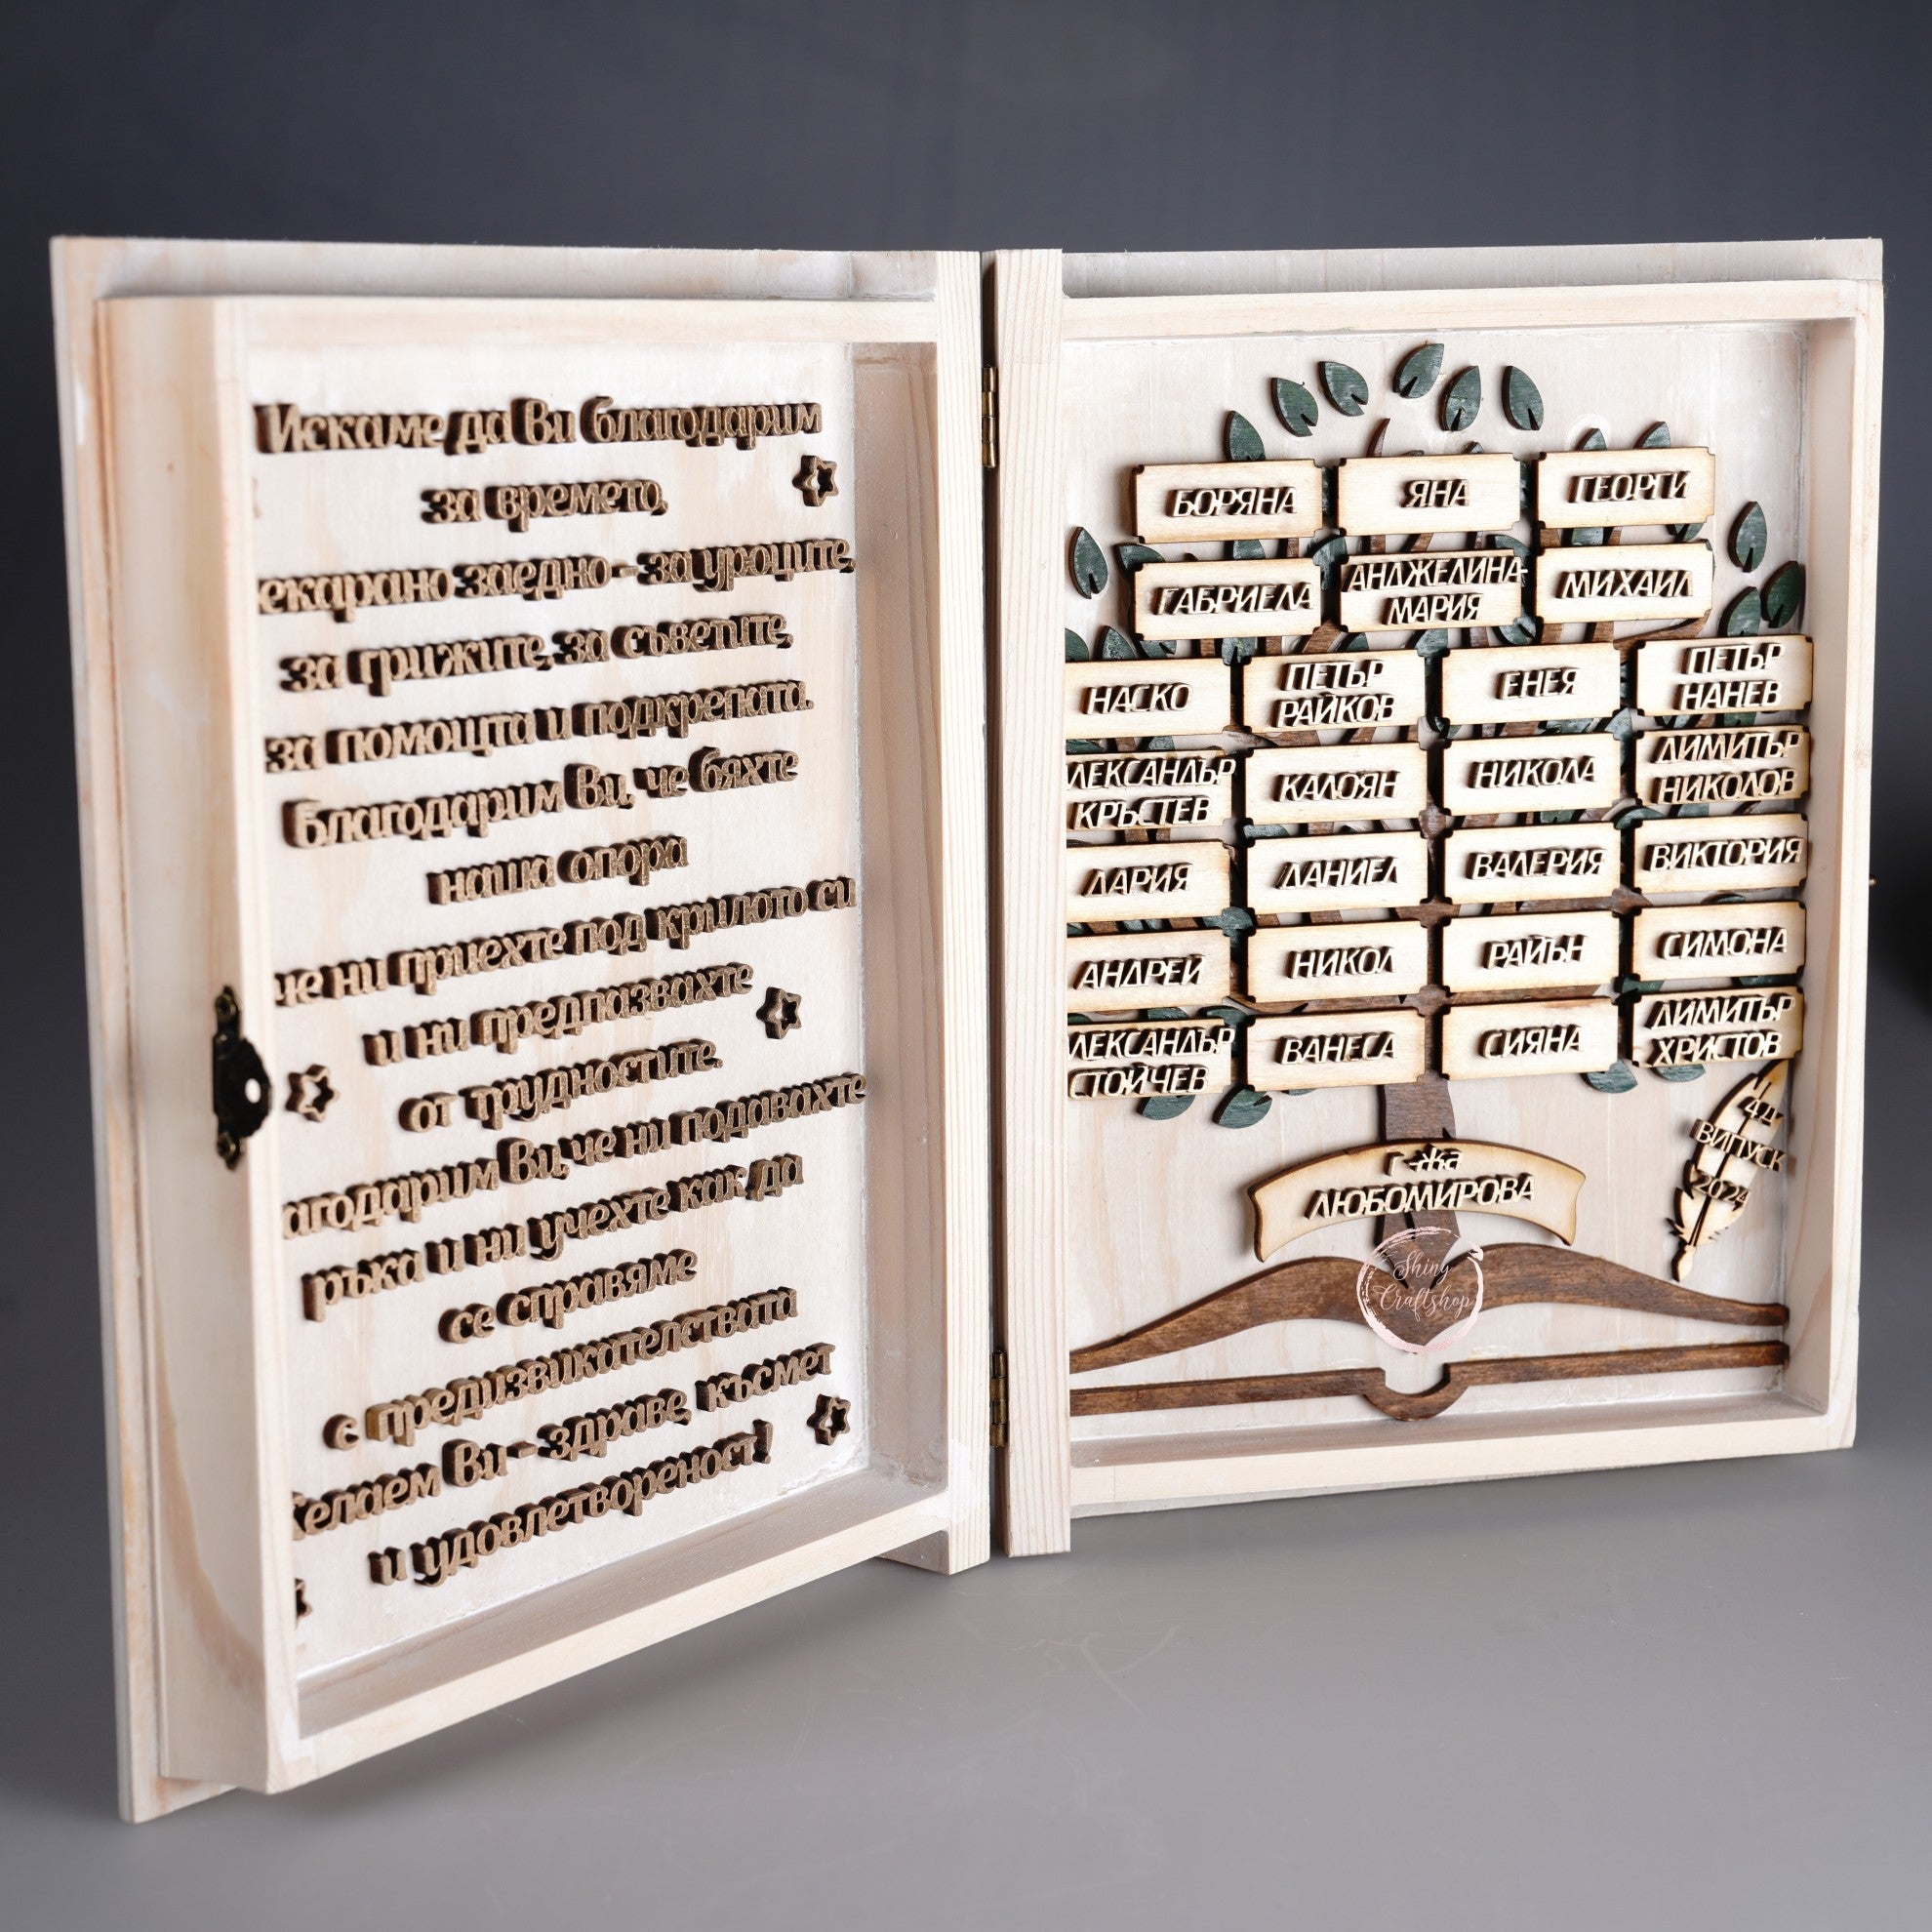 Искаме да Ви благодарим
за времето,
екарано заедно - за уроците,
за грижите, за съветите,
за помощта и подкрепата.
Благодарим Ви, че бяхте
наша опора
че ни приехте под крилото си
и ни предпазвахте
от трудностите.
агодарим Ви, че ни подавахте
ръка и ни учехте как да
се справяме
с предизвикателствата
желаем Ви - здраве, късмет
и удовлетвореност!
БОРЯНА ЯНА ГЕОРГИ
ГАБРИЕЛА АНДЖЕЛИНА-МАРИЯ МИХАИЛ
НАСКО ПЕТЪР РАЙКОВ ЕНЕЯ ПЕТЪР НАНЕВ
ЛЕКСАНДЪР КРЪСТЕВ КАЛОЯН НИКОЛА ДИМИТЪР НИКОЛОВ
ДАРИЯ ДАНИЕЛ ВАЛЕРИЯ ВИКТОРИЯ
АНДРЕЙ НИКОЛ РАЙЪН СИМОНА
ЛЕКСАНДЪР СТОЙЧЕВ ВАНЕСА СИЯНА ДИМИТЪР ХРИСТОВ
4Д
ВИПУСК
2024
г-жа
ЛЮБОМИРОВА
Shiny
Craftshop